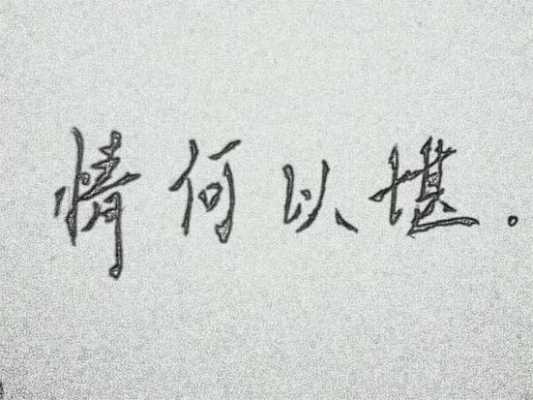 情何以堪。